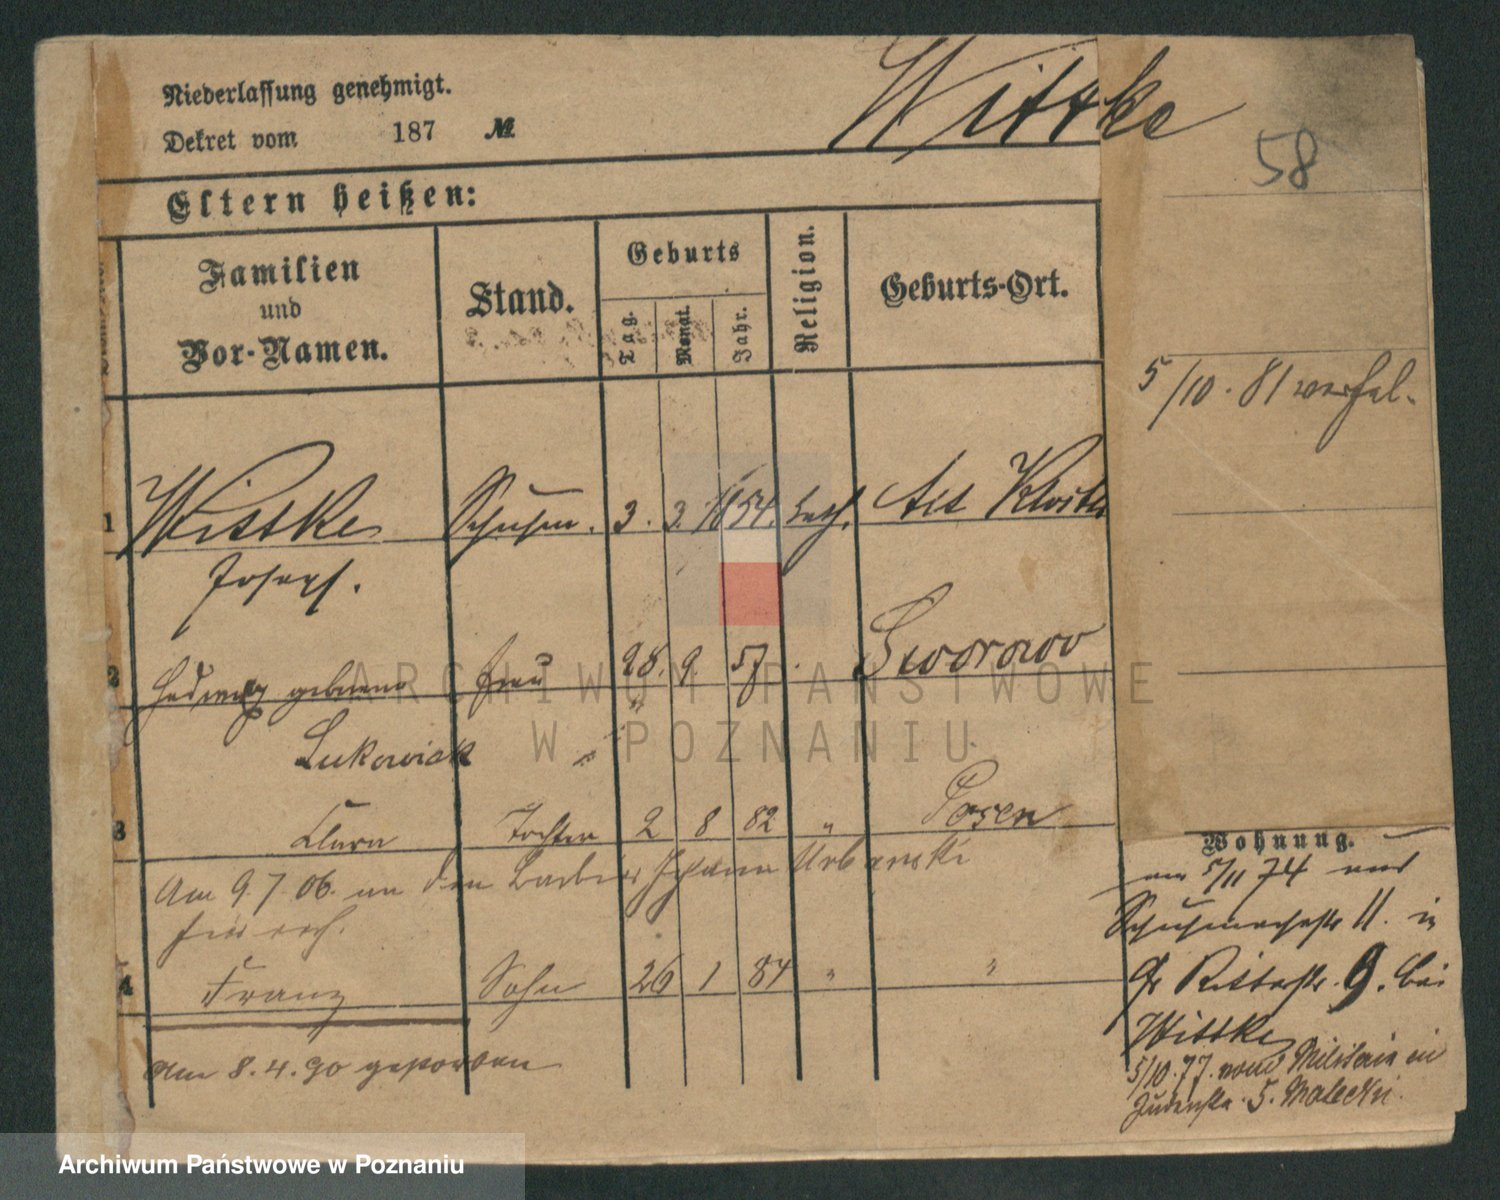 Niederlassung genehmigt.
Wittke
Dekret vom 187 №
58
Eltern heißen:
Familien und Vor-Namen.
Stand.
Geburts
Tag. Monat. Jahr.
Religion.
Geburts-Ort.
5/10. 81
1 Wittke 3. 3. 1854. kath. Alt Kloster
Joseph.
2 Hedwig geborene Frau 28. 9. 57 Sworowo
Lukowiak
3 Clara Tochter 2 8 82 " Posen
Am 9. 7. 06. an den Barbier Johann Urbanski
4 Franz Sohn 26 1 84 " "
Am 8. 4. 90 gestorben
Wohnung.
am 5/11 74 von
11. in
Gr Ritterstr. 9. bei
Wittke
5/10. 77. vom Militair in
Judenstr. 5. Malecki.
ARCHIWUM PAŃSTWOWE
W POZNANIU
Archiwum Państwowe w Poznaniu